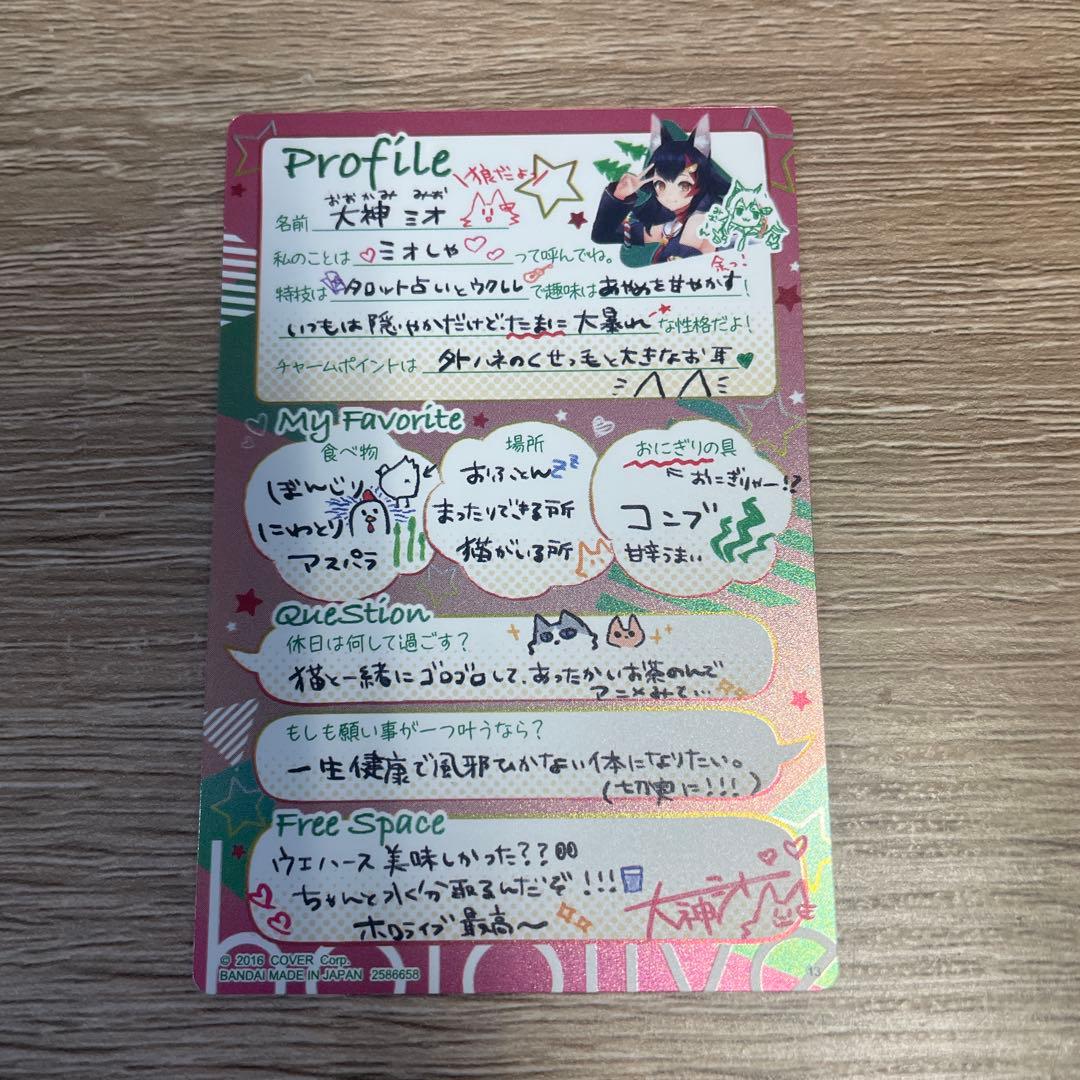 Profile
\狼だよ/
おおかみ みお
名前 大神 ミオ
みおーん
私のことは ♡ミオしゃ♡♡ って呼んでね。
余っ!
特技は タロット占いとウクレレ で趣味は あやめを甘やかす!
いつもは隠やかだけど、たまに大暴れ な性格だよ!
チャームポイントは 外ハネのくせっ毛と大きなお耳♥
My Favorite
食べ物
ぼんじり
にわとり
アスパラ
場所
おふとんzz
まったりできる所
猫がいる所
おにぎりの具
おにぎりゃー!?
コンブ
甘辛うまい
QueStion
休日は何して過ごす?
猫と一緒にゴロゴロして、あったかいお茶のんで
アニメみて…
もしも願い事が一つ叶うなら?
一生健康で風邪ひかない体になりたい。
(切実に!!!)
Free Space
ウエハース美味しかった??
ちゃんと水分取るんだぞ!!!
ホロライブ最高〜
大神ミオ
hololive
© 2016 COVER Corp.
BANDAI MADE IN JAPAN 2586658
13